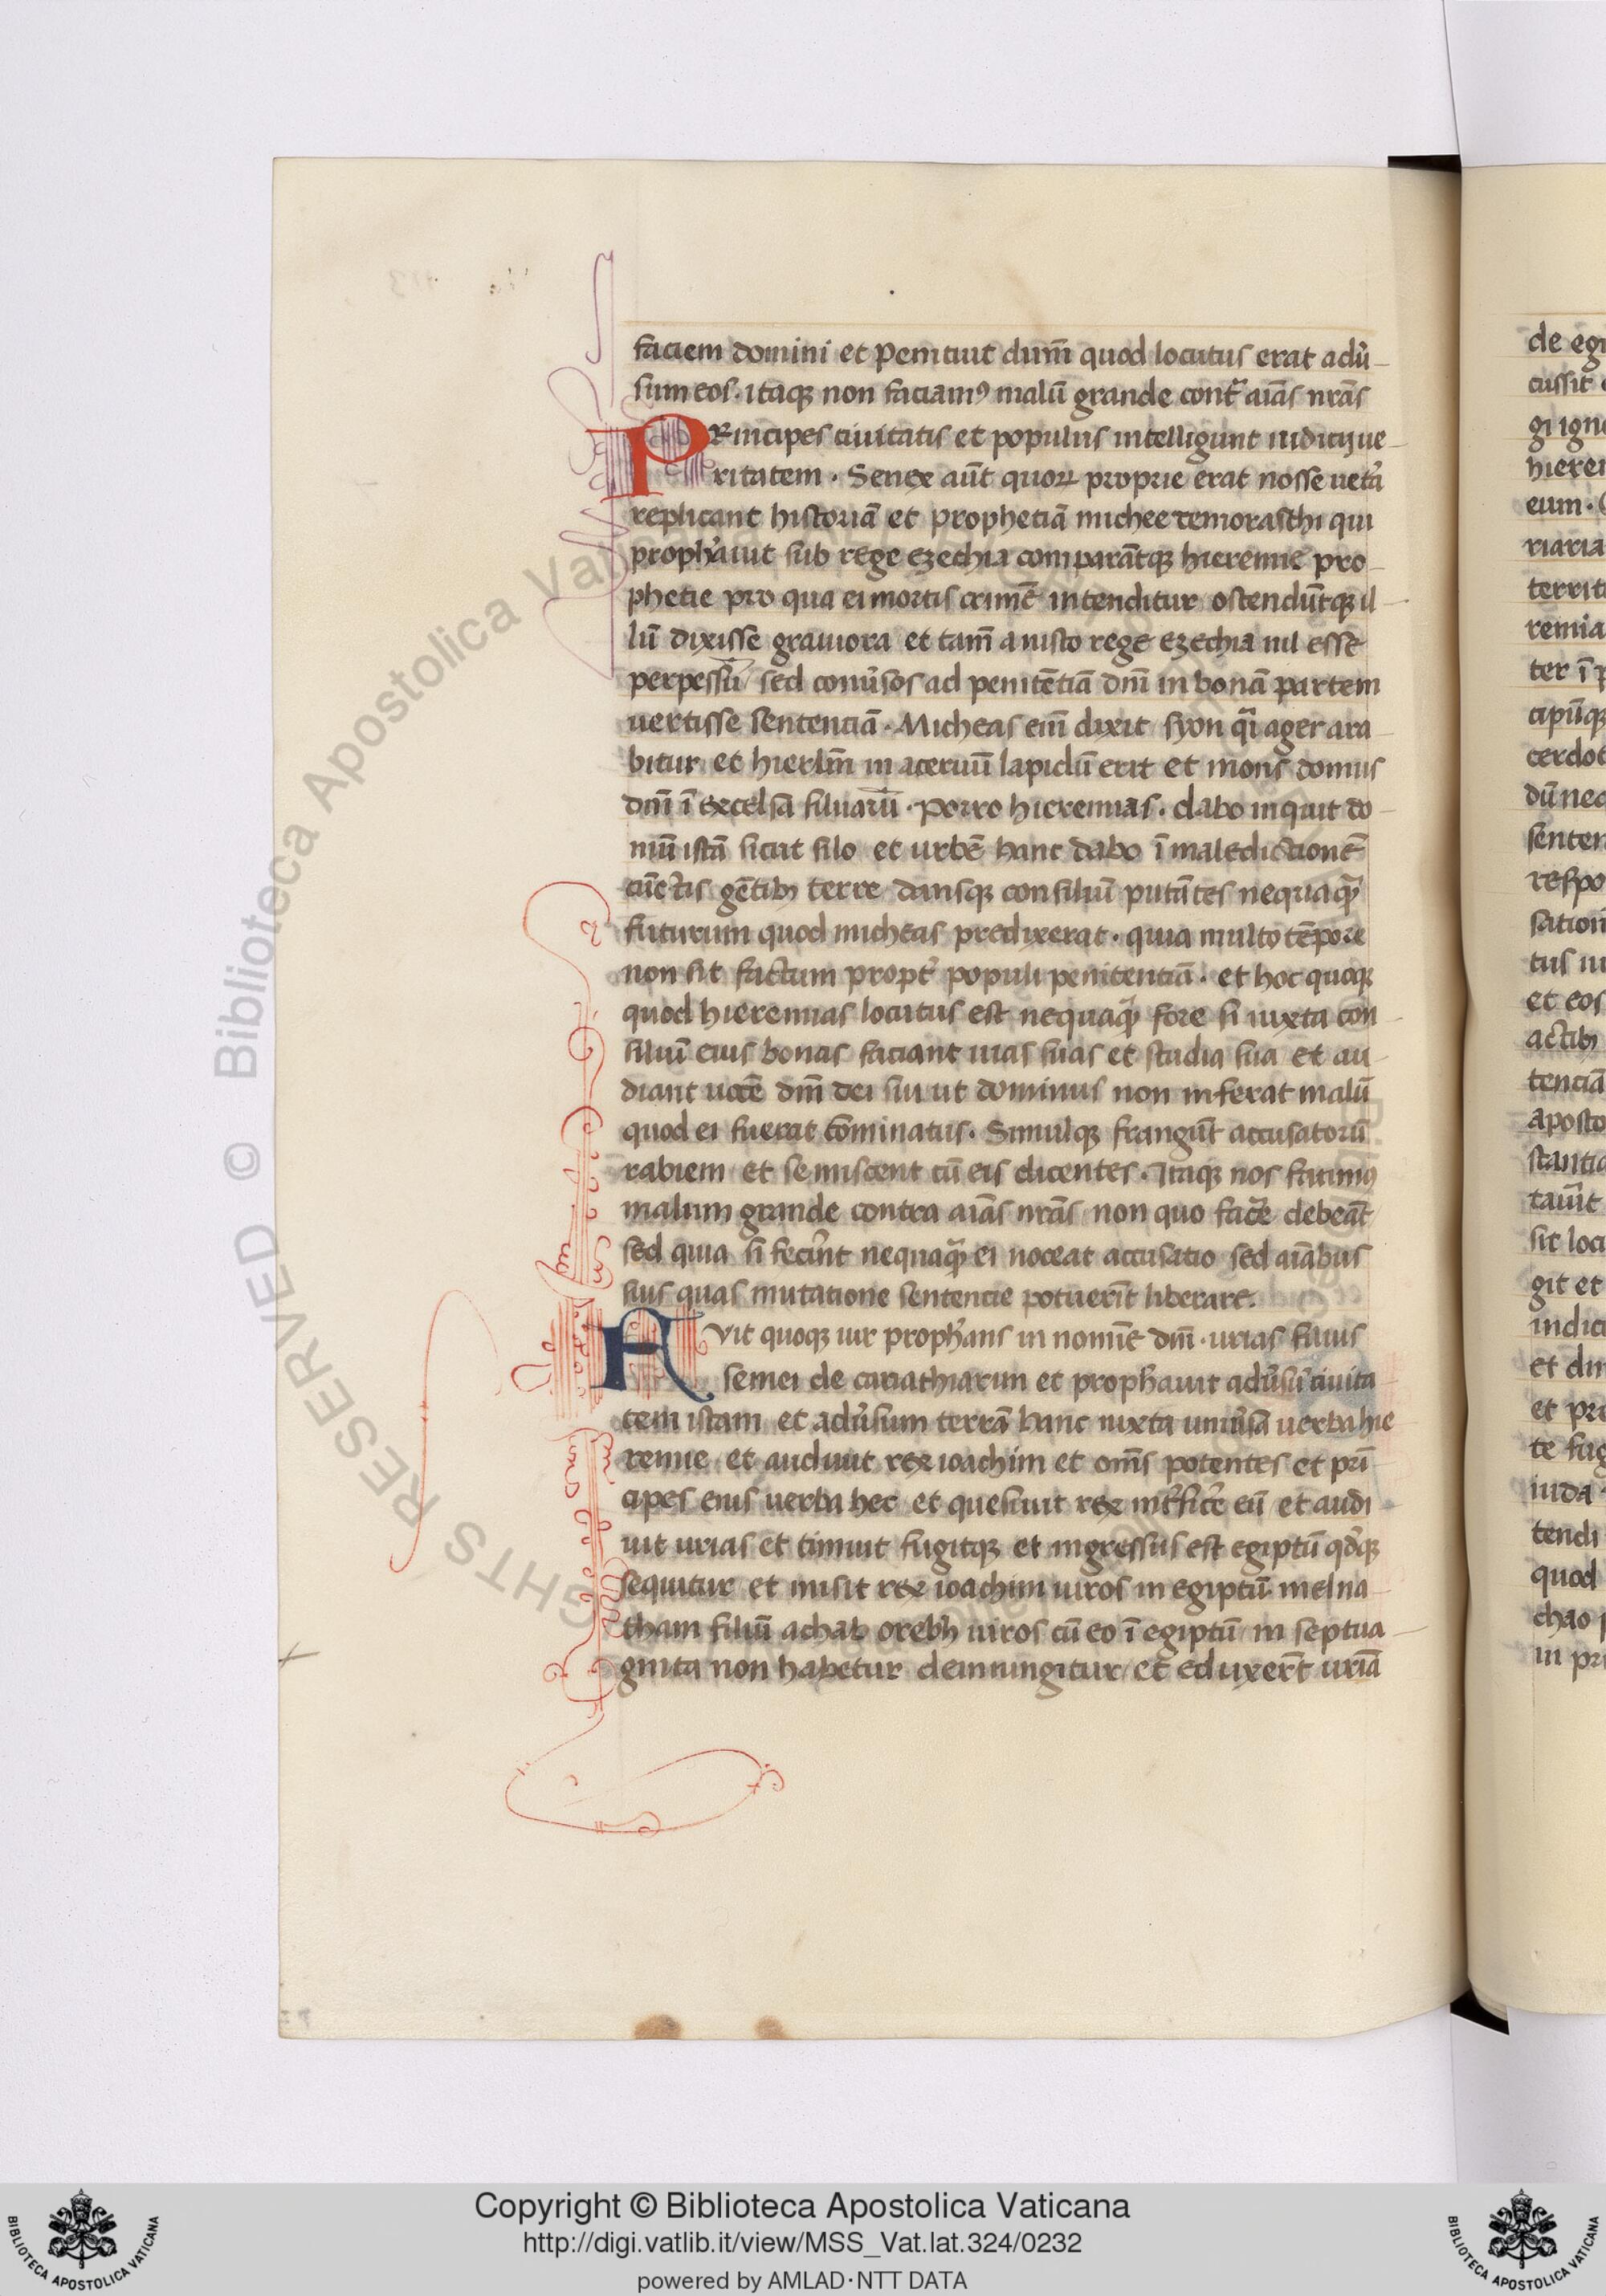 faciem domini et penituit dum̄ quod locutus erat adu᷑
sum eos · itaqꝫ non faciamꝰ malū grande cont᷑ aīas nr̄as
PRincipes ciuitatis et populus intelligunt iudicij ue
ritatem · Senex aūt quoꝝ proprie erat nosse uet᷑a
replicant historiā et prophetiā michee temorasthi qui
proph᷑auit sub rege ezechia comparātqꝫ hieremie pro
phetie pro qua ei mortis crimē intenditur ostendūtqꝫ il
lū dixisse grauiora et tam̄ a iusto rege ezechia nil esse
perpessū sed conu᷑sos ad penitētiā dn̄i in bonā partem
uertisse sentenciā · Micheas eni᷑ dixit syon qͣi ager ara
bitur et hierlm̄ in aceruū lapidū erit et mons domus
dn̄i ī excelsā siluarū · Porro hieremias · dabo inquit do
mū istā sicut silo et urbē hanc dabo ī maledictionē
cūctis gētibꝫ terre dansqꝫ consiliū putātes nequaqͣꝫ
futurum quod micheas predixerat · quia multo tēpore
non sit factum propt᷑ populi penitentiā · et hoc quoqꝫ
quod hieremias locutus est nequaqͣꝫ fore si iuxta con
siliū eius bonas faciant uias suas et studia sua et au
diant uocē dn̄i dei sui ut dominus non inferat malū
quod ei fuerat cōminatus · Simulqꝫ frangūt accusatorū
rabiem et se miscent cū eis dicentes · Itaqꝫ nos facimꝰ
malum grande contra aīas nr̄as non quo fac᷑e debeāt
sed quia si fec᷑int nequaqͣꝫ ei noceat accusatio sed aīabus
suis quas mutatione sentencie potuer̄it liberare.
FVit quoqꝫ uir proph᷑ans in nomīe dn̄i · urias filius
semei de cariathiarim et proph᷑auit adu᷑sū ciuita
tem istam et adu᷑sum terrā hanc iuxta uniu᷑sa uerba hie
remie et audiuit rex ioachim et om̄s potentes et pri̅
cipes eius uerba hec et quesiuit rex int᷑fic᷑e eū et audi
uit urias et timuit fugitqꝫ et ingressus est egiptū qd̓qꝫ
sequitur et misit rex ioachim uiros in egiptū melna
tham filiū achab orebh uiros cū eo ī egiptū in septua
ginta non habetur deinungitur et eduxer̄t uriā
de egi
cussit
gi igne
hierem
eum ·
riaria
territ
remia
ter ī p
cipūqꝫ
cerdot
dū neq
senten
respo
sation
tus iu
et eos
actibꝫ
tenciā
aposto
stantia
tauit
sit locu
git et
indica
et dn
et pro
te fug
iuda
tendi
quod
chao p
in pri
© Biblioteca Apostolica Vaticana
RIGHTS RESERVED
Copyright © Biblioteca Apostolica Vaticana
http://digi.vatlib.it/view/MSS_Vat.lat.324/0232
powered by AMLAD·NTT DATA
BIBLIOTECA APOSTOLICA VATICANA
BIBLIOTECA APOSTOLICA VATICANA